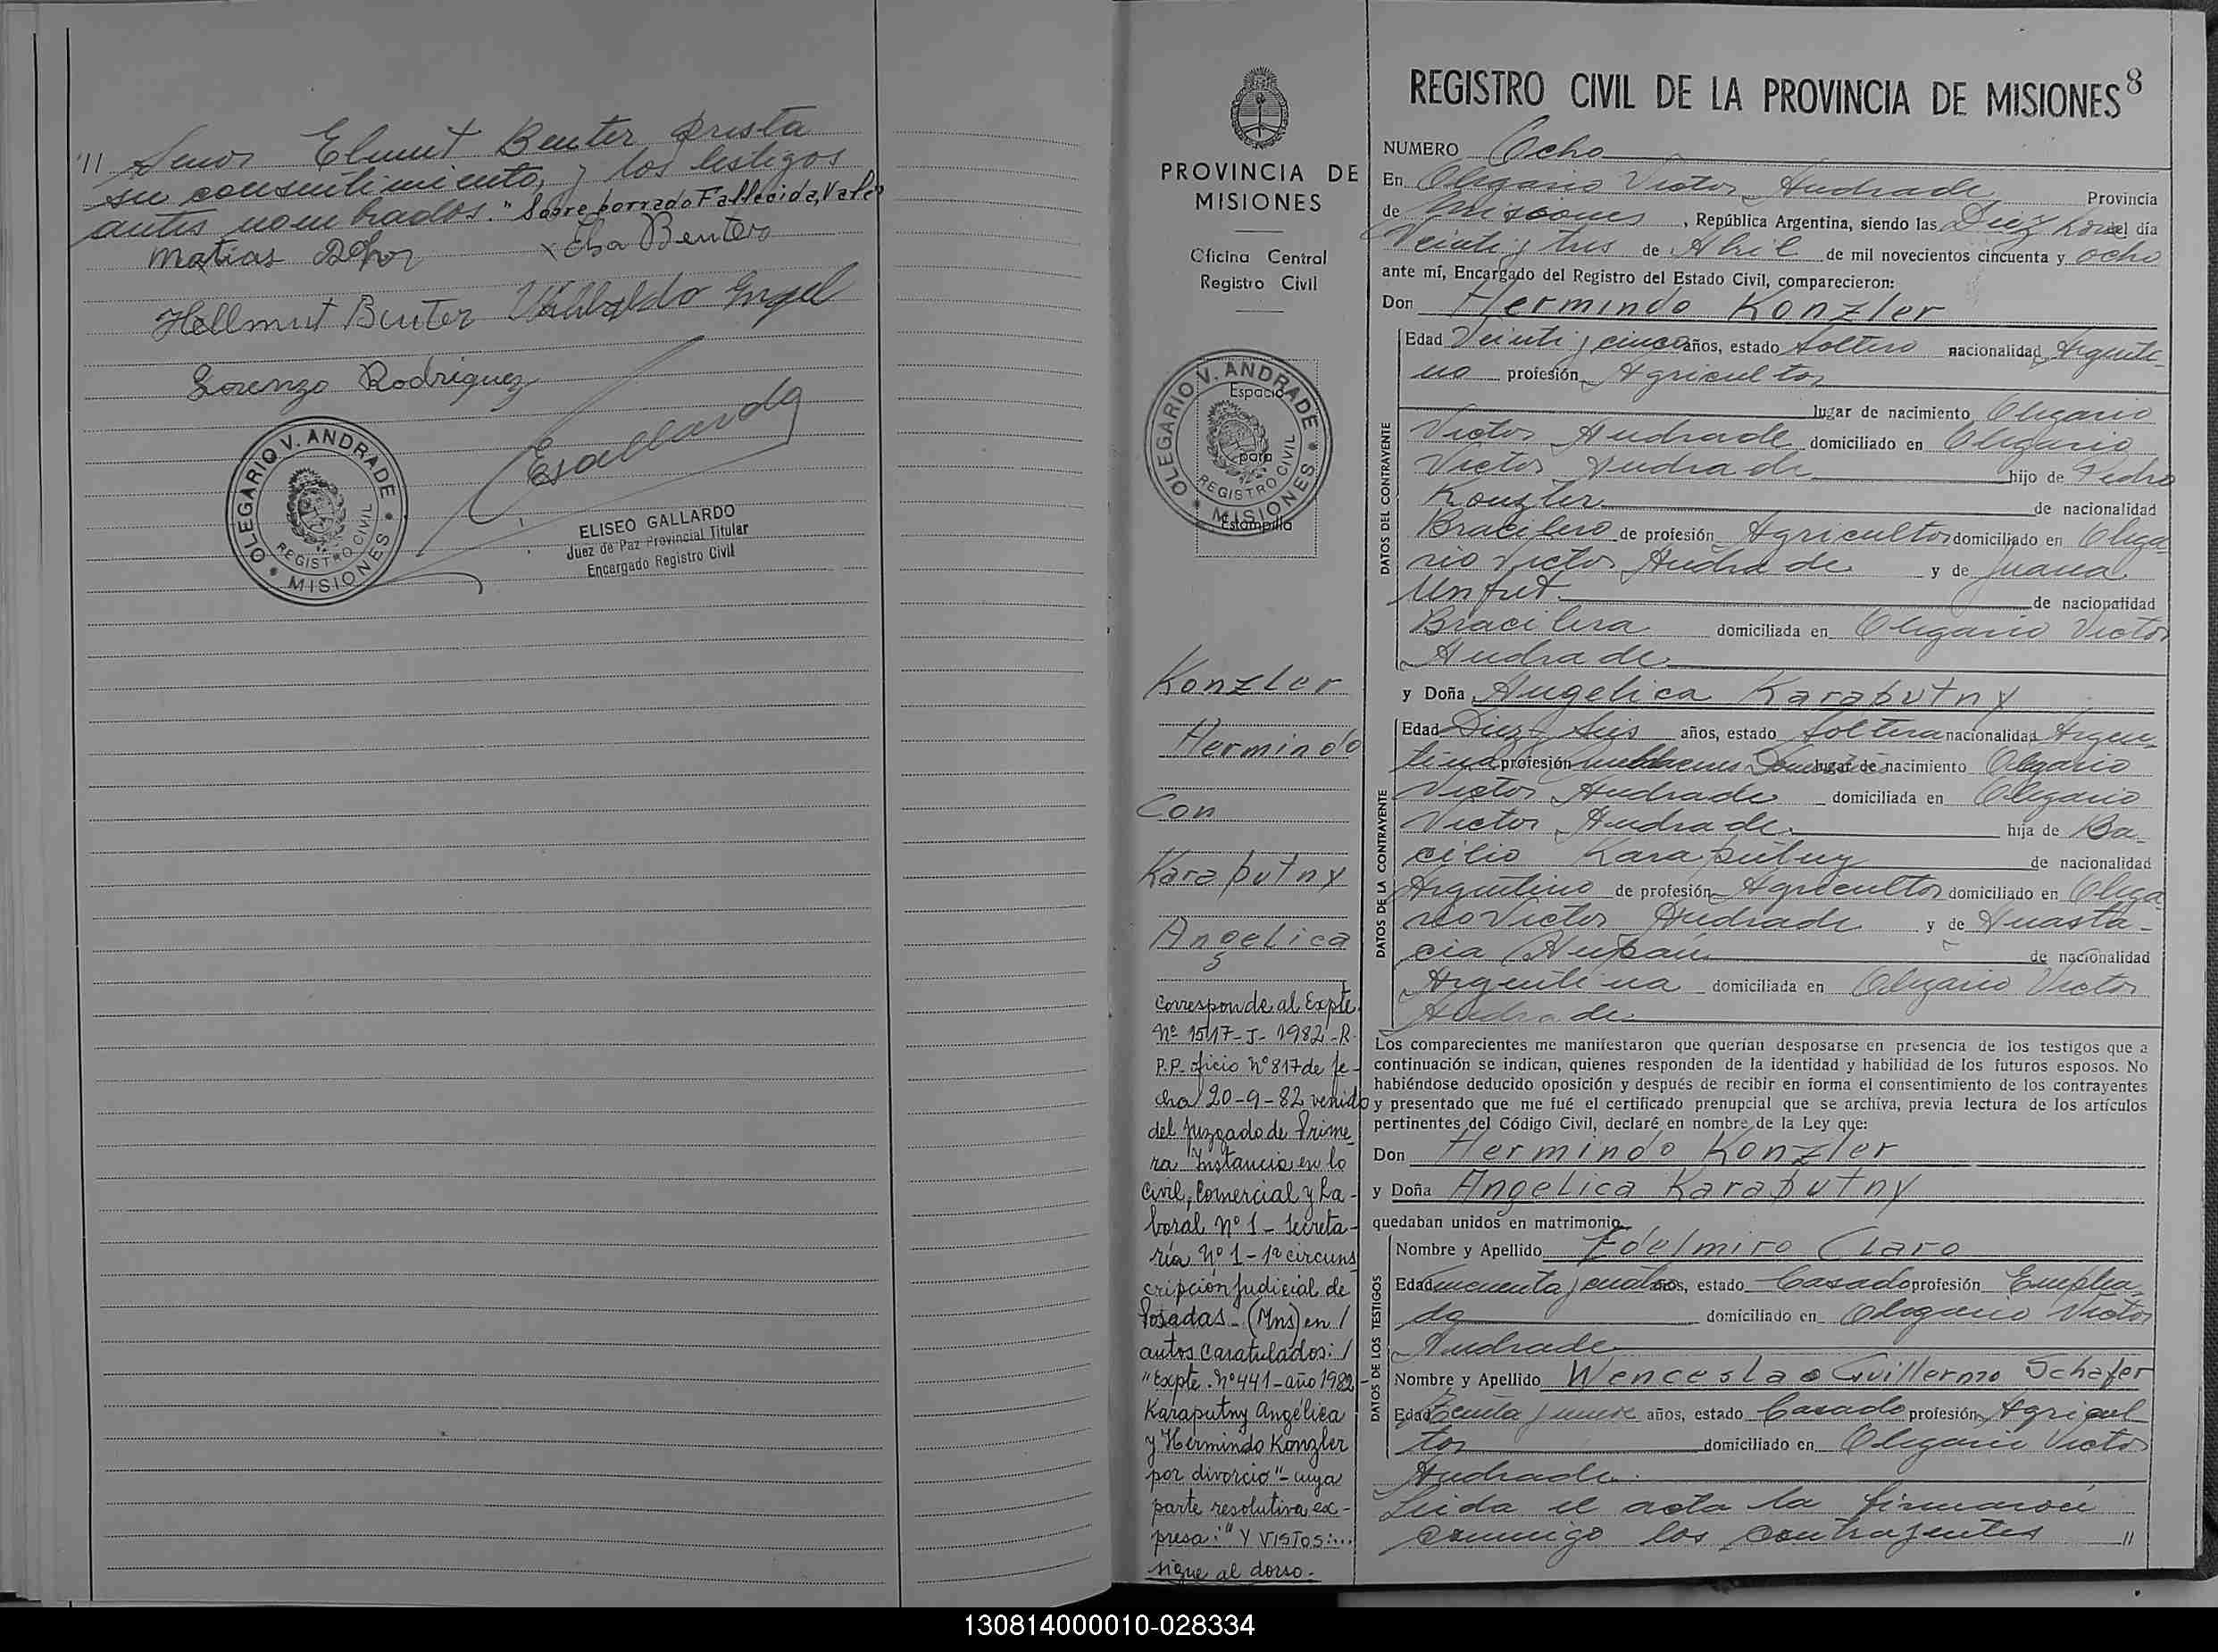 "11 Senor Elmut Beuter presta
su consentimiento, y los testigos
antes nombrados." Sobre borrado Fallecida, Vale
Matias
x Elsa Beuter
Hellmut Beuter Willibaldo Engel
Lorenzo Rodriguez
EGallardo
OLEGARIO V. ANDRADE
REGISTRO CIVIL
* MISIONES *
ELISEO GALLARDO
Juez de Paz Provincial Titular
Encargado Registro Civil
PROVINCIA DE
MISIONES
Oficina Central
Registro Civil
OLEGARIO V. ANDRADE
REGISTRO CIVIL
* MISIONES *
Espacio
para
Estampilla
Konzler
Hermindo
Con
Karaputny
Angelica
5
Corresponde al Expte.
Nº 1517-J-1982-R.
P.P. oficio Nº 817 de fe-
cha 20-9-82 venido
del Juzgado de Prime-
ra Instancia en lo
Civil, Comercial y La-
boral Nº 1 - Secreta-
ría Nº 1 - 1ª circuns
cripción Judicial de
Posadas - (Mns) en /
autos caratulados: /
"Expte. Nº 441 - año 1982 -
Karaputny Angélica
y Hermindo Konzler
por divorcio" - cuya
parte resolutiva ex-
presa: "Y VISTOS:...
sigue al dorso.-
REGISTRO CIVIL DE LA PROVINCIA DE MISIONES 8
NUMERO Ocho
En Olegario Victor Andrade Provincia
de Misiones, República Argentina, siendo las Diez horas del día
Veinti y tres de Abril de mil novecientos cincuenta y ocho
ante mí, Encargado del Registro del Estado Civil, comparecieron:
Don Hermindo Konzler
DATOS DEL CONTRAYENTE
Edad Veinti y cinco años, estado Soltero nacionalidad Argenti-
no profesión Agricultor
lugar de nacimiento Olegario
Victor Andrade domiciliado en Olegario
Victor Andrade hijo de Pedro
Konzler de nacionalidad
Bracilero de profesión Agricultor domiciliado en Olega
rio Victor Andrade y de Juana
de nacionalidad
Bracilera domiciliada en Olegario Victor
Andrade
y Doña Angelica Karaputny
DATOS DE LA CONTRAYENTE
Edad Diez y Seis años, estado Soltera nacionalidad Argen-
tina profesión Quehaceres Domesticos lugar de nacimiento Olegario
Victor Andrade domiciliada en Olegario
Victor Andrade hija de Ba-
cilio Karaputny de nacionalidad
Argentino de profesión Agricultor domiciliado en Olega-
rio Victor Andrade y de Anasta-
cia de nacionalidad
Argentina domiciliada en Olegario Victor
Andrade
Los comparecientes me manifestaron que querían desposarse en presencia de los testigos que a
continuación se indican, quienes responden de la identidad y habilidad de los futuros esposos. No
habiéndose deducido oposición y después de recibir en forma el consentimiento de los contrayentes
y presentado que me fué el certificado prenupcial que se archiva, previa lectura de los artículos
pertinentes del Código Civil, declaré en nombre de la Ley que:
Don Hermindo Konzler
y Doña Angelica Karaputny
quedaban unidos en matrimonio.
DATOS DE LOS TESTIGOS
Nombre y Apellido Edelmiro Claro
Edad cincuenta y cuatro años, estado Casado profesión Emplea-
do domiciliado en Olegario Victor
Andrade
Nombre y Apellido Wenceslao Guillermo Schafer
Edad Treinta y nueve años, estado Casado profesión Agricul
tor domiciliado en Olegario Victor
Andrade.
Leida el acta la firmaron
conmigo los contrayentes 11
130814000010-028334